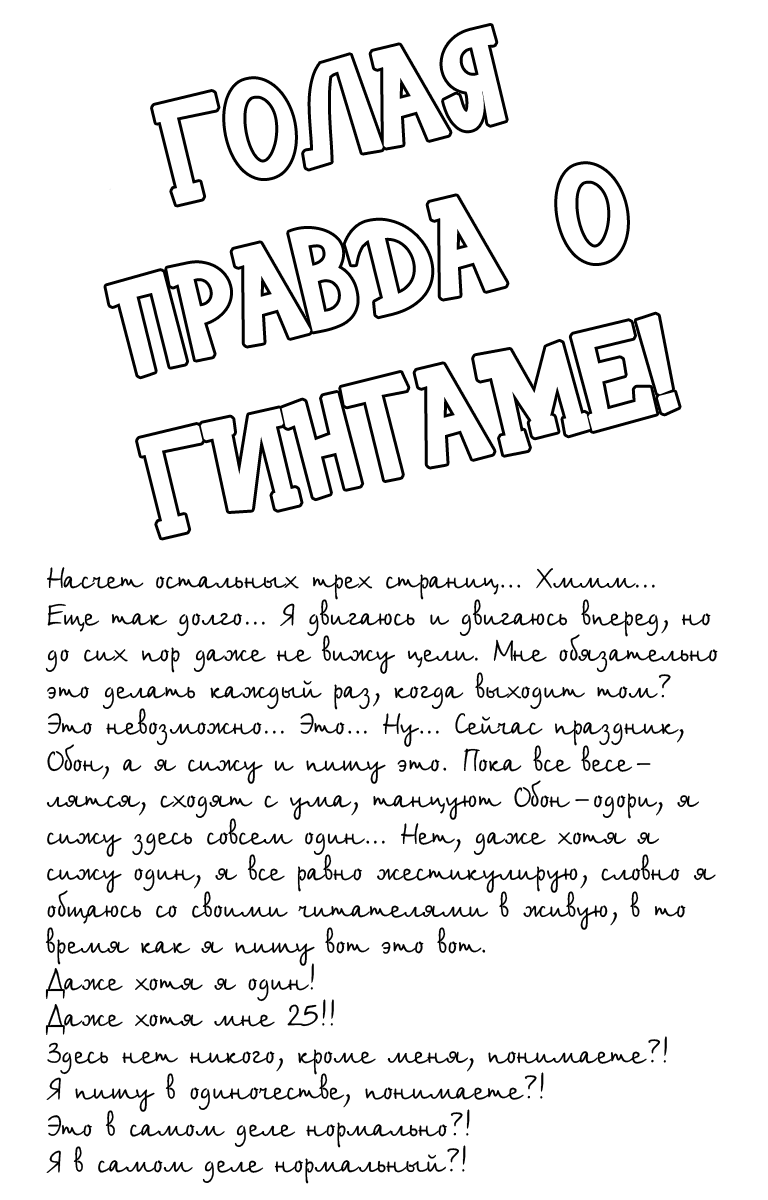 ГОЛАЯ
ПРАВДА О
ГИНТАМЕ!
Насчет остальных трех страниц... Хммм...
Еще так долго... Я двигаюсь и двигаюсь вперед, но
до сих пор даже не вижу цели. Мне обязательно
это делать каждый раз, когда выходит том?
Это невозможно... Это... Ну... Сейчас праздник,
Обон, а я сижу и пишу это. Пока все весе-
лятся, сходят с ума, танцуют Обон-одори, я
сижу здесь совсем один... Нет, даже хотя я
сижу один, я все равно жестикулирую, словно я
общаюсь со своими читателями в живую, в то
время как я пишу вот это вот.
Даже хотя я один!
Даже хотя мне 25!!
Здесь нет никого, кроме меня, понимаете?!
Я пишу в одиночестве, понимаете?!
Это в самом деле нормально?!
Я в самом деле нормальный?!